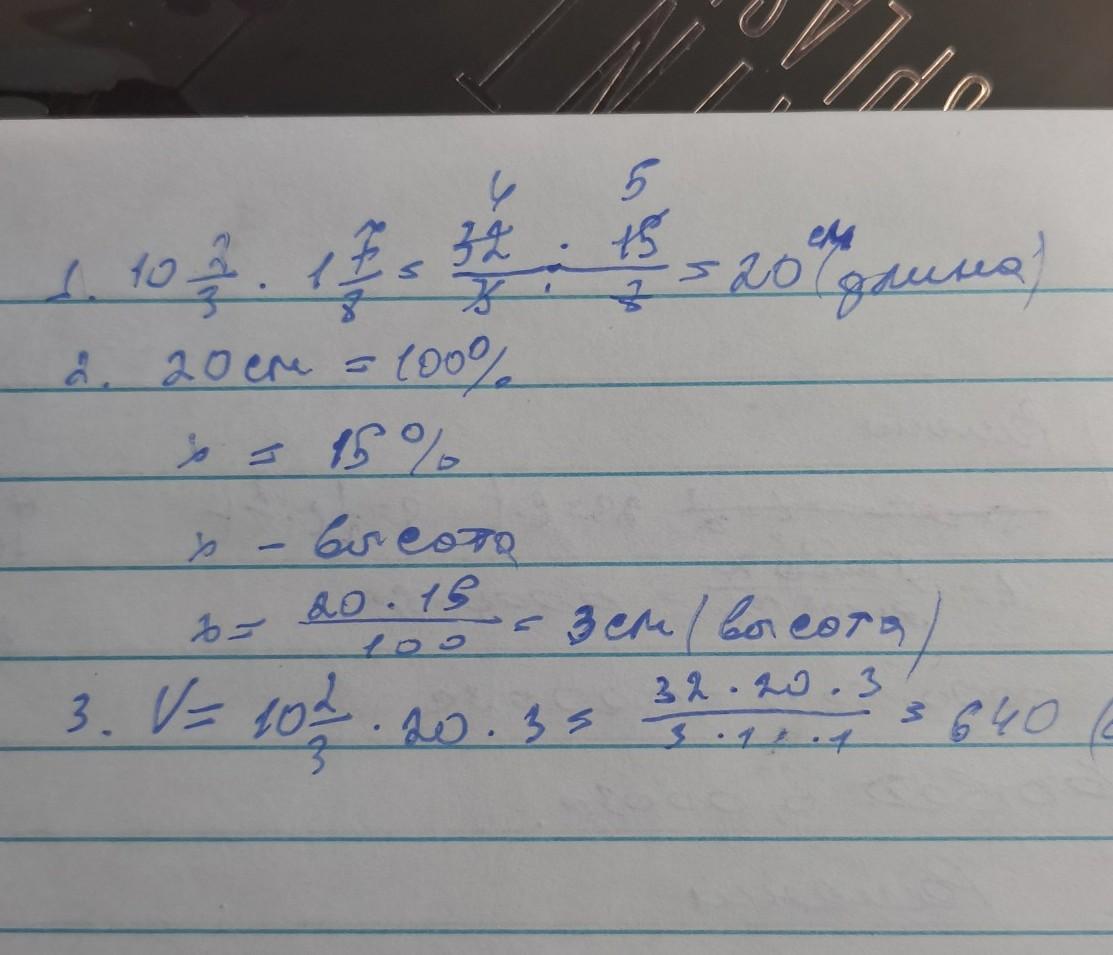 SPLAS
1. 10 2/3 · 1 7/8 = 32/3 : 15/8 = 20 см (длина)
4 5
2. 20 см = 100%
x = 15%
x - высота
x = 20 · 15 / 100 = 3 см (высота)
3. V = 10 2/3 · 20 · 3 = 32 · 20 · 3 / 3 · 1 · 1 = 640 (